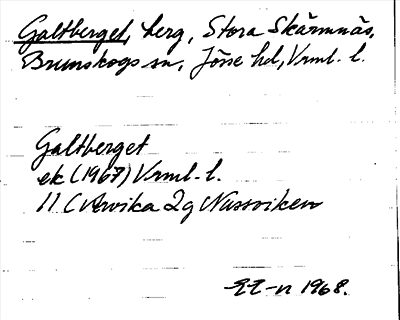 Galtberget, berg, Stora Skärmnäs,
Brunskogs sn, Jösse hd, Vrml. l.
Galtberget
ek (1967) Vrml. l.
11 C Arvika 2g Nussviken
1968.